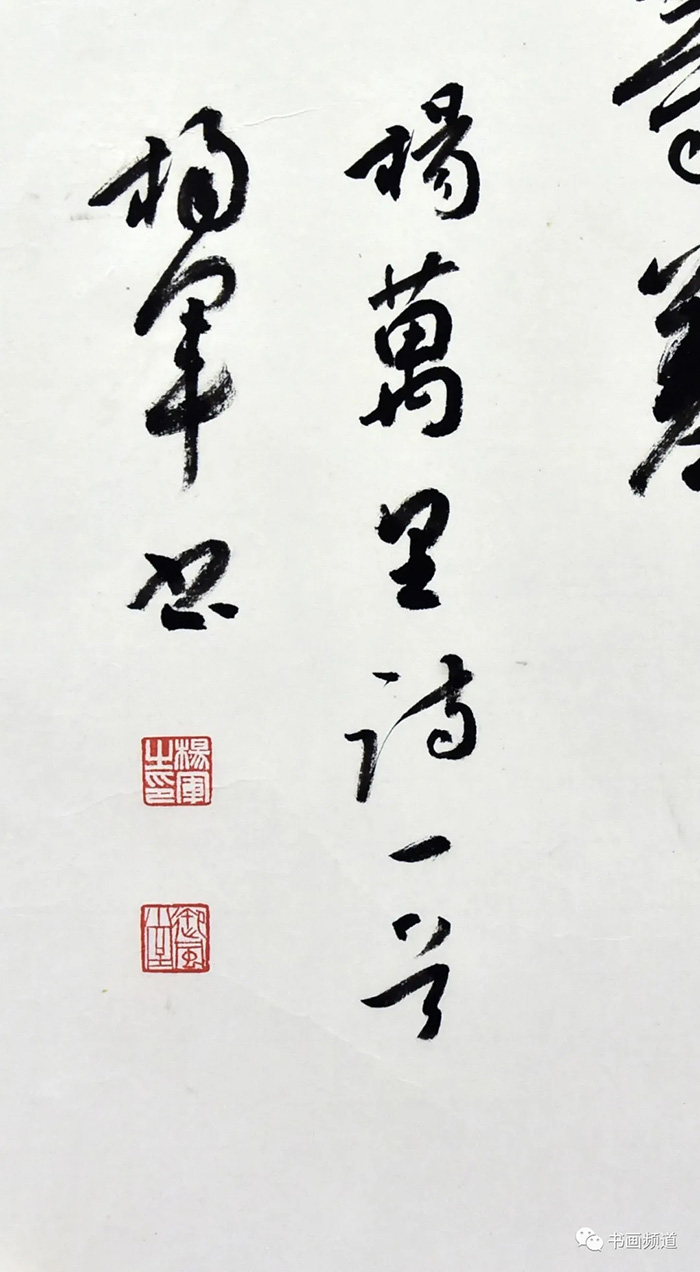 楊萬里詩一首
楊軍書
楊軍之印
御風堂
书画频道